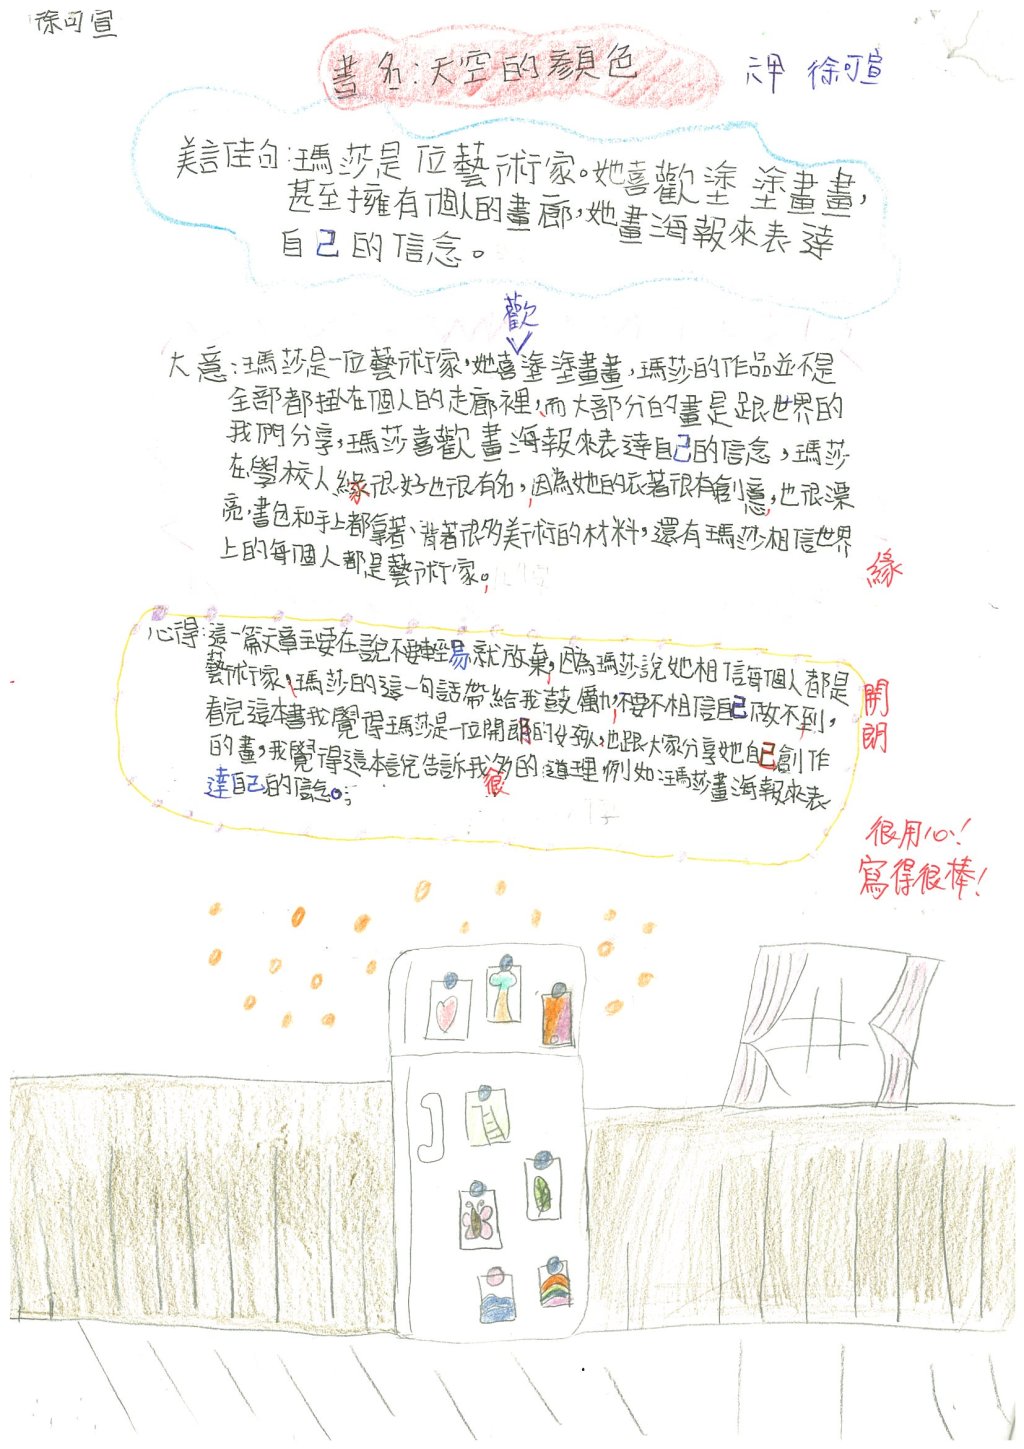 徐可宣
書名:天空的顏色
六甲 徐可宣
美言佳句:瑪莎是一位藝術家。她喜歡塗塗畫畫,
甚至擁有個人的畫廊,她畫海報來表達
自己的信念。
歡
大意:瑪莎是一位藝術家,她喜塗塗畫畫,瑪莎的作品並不是
全部都掛在個人的走廊裡,而大部分的畫是跟世界的
我們分享,瑪莎喜歡畫海報來表達自己的信念,瑪莎
在學校人緣很好也很有名,因為她的衣著很有創意,也很漂
亮,書包和手上都拿著、背著很多美術的材料,還有瑪莎相信世界
上的每個人都是藝術家。
緣
心得:這一篇文章主要在說不要輕易就放棄,因為瑪莎說她相信每個人都是
藝術家,瑪莎的這一句話帶給我鼓勵,不要不相信自己做不到,
看完這本書我覺得瑪莎是一位開朗的女孩,也跟大家分享她自己創作
的畫,我覺得這本說告訴我很多的道理,例如:瑪莎畫海報來表
達自己的信念。
開
朗
很用心!
寫得很棒!